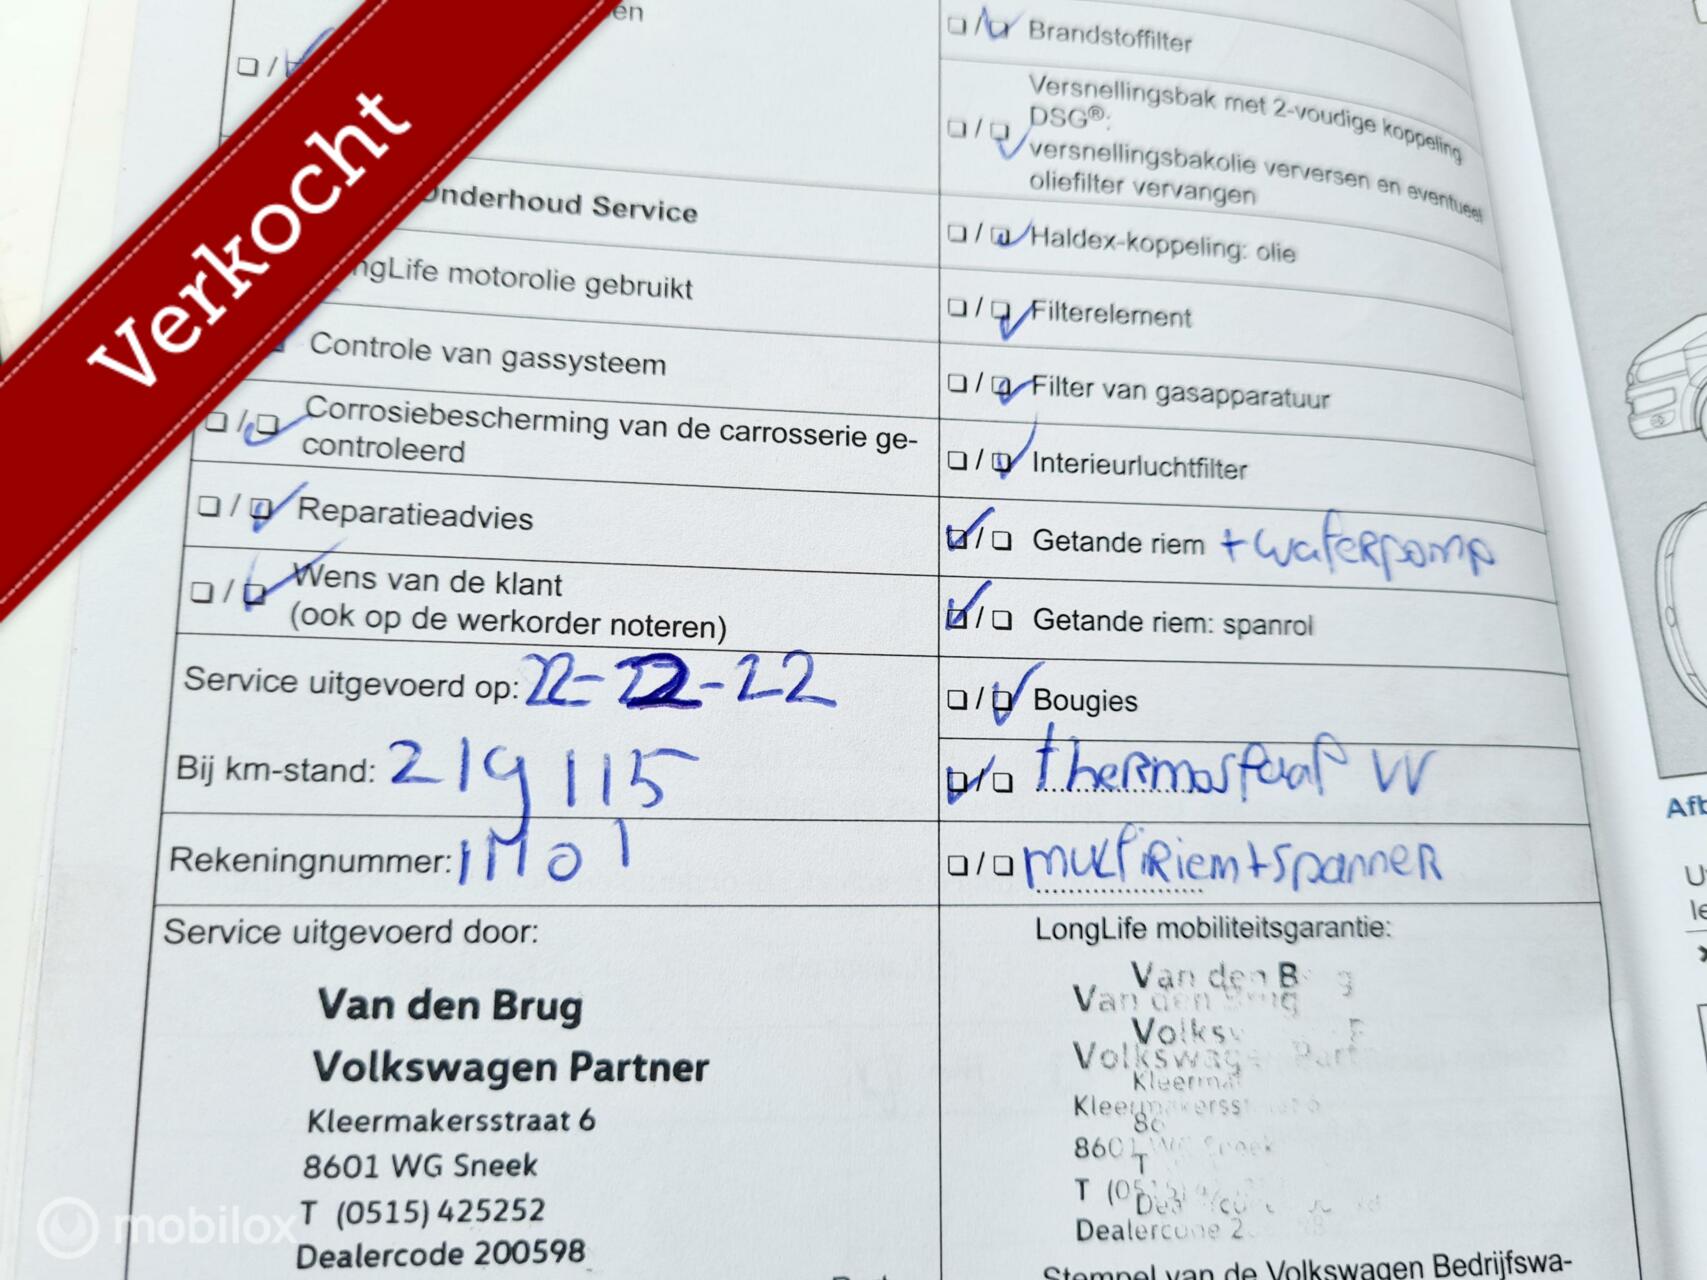 Verkocht
en
Onderhoud Service
ngLife motorolie gebruikt
Controle van gassysteem
Corrosiebescherming van de carrosserie ge-
controleerd
Reparatieadvies
Wens van de klant
(ook op de werkorder noteren)
Service uitgevoerd op:
Bij km-stand: 219115
Rekeningnummer:
Service uitgevoerd door:
Van den Brug
Volkswagen Partner
Kleermakersstraat 6
8601 WG Sneek
T (0515) 425252
Dealercode 200598
Brandstoffilter
Versnellingsbak met 2-voudige koppeling
DSG®:
versnellingsbakolie verversen en eventueel
oliefilter vervangen
Haldex-koppeling: olie
Filterelement
Filter van gasapparatuur
Interieurluchtfilter
Getande riem + waterpomp
Getande riem: spanrol
Bougies
thermostaat VV
multiRiem + spanner
LongLife mobiliteitsgarantie:
Van den
Van den Brug
Volkswagen
8601
T
Dealercode
Stempel van de Volkswagen Bedrijfswa-
Afb
mobilox